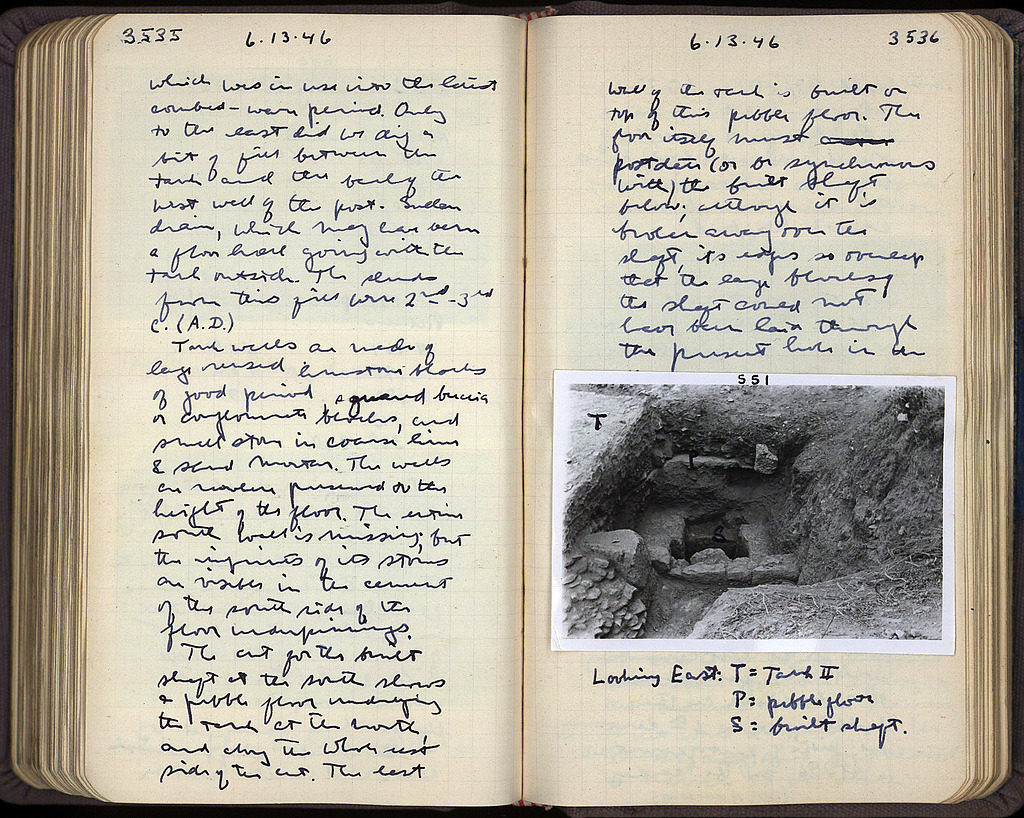 3535 6.13.46
which was in use into the latest
combed-ware period. Only
to the east did we dig a
bit of fill between the
tank and the
west wall of the post-Sullan
drain, which may have been
a floor level going with the
tank outside. The sherds
from this fill were 2nd-3rd
C. (A.D.)
Tank walls are made of
large reused limestone blocks
of good period, squared breccia
or conglomerate blocks, and
small stones in coarse lime
& sand mortar. The walls
are nowhere preserved to the
height of the floor. The entire
south wall is missing, but
the imprints of its stones
are visible in the cement
of the south side of the
floor underpinnings.
The cut for the built
shaft at the south shows
a pebble floor underlying
the tank at the north,
and along the whole east
side of the cut. The east
6.13.46 3536
wall of the tank is built on
top of this pebble floor. The
floor itself must
postdate (or be synchronous
with) the built shaft
below; although it is
broken away over the
shaft, its edges so overlap
that the large blocks of
the shaft could not
have been laid through
the present hole in the
551
T
P
S
Looking East: T = Tank II
P = pebble floor
S = built shaft.